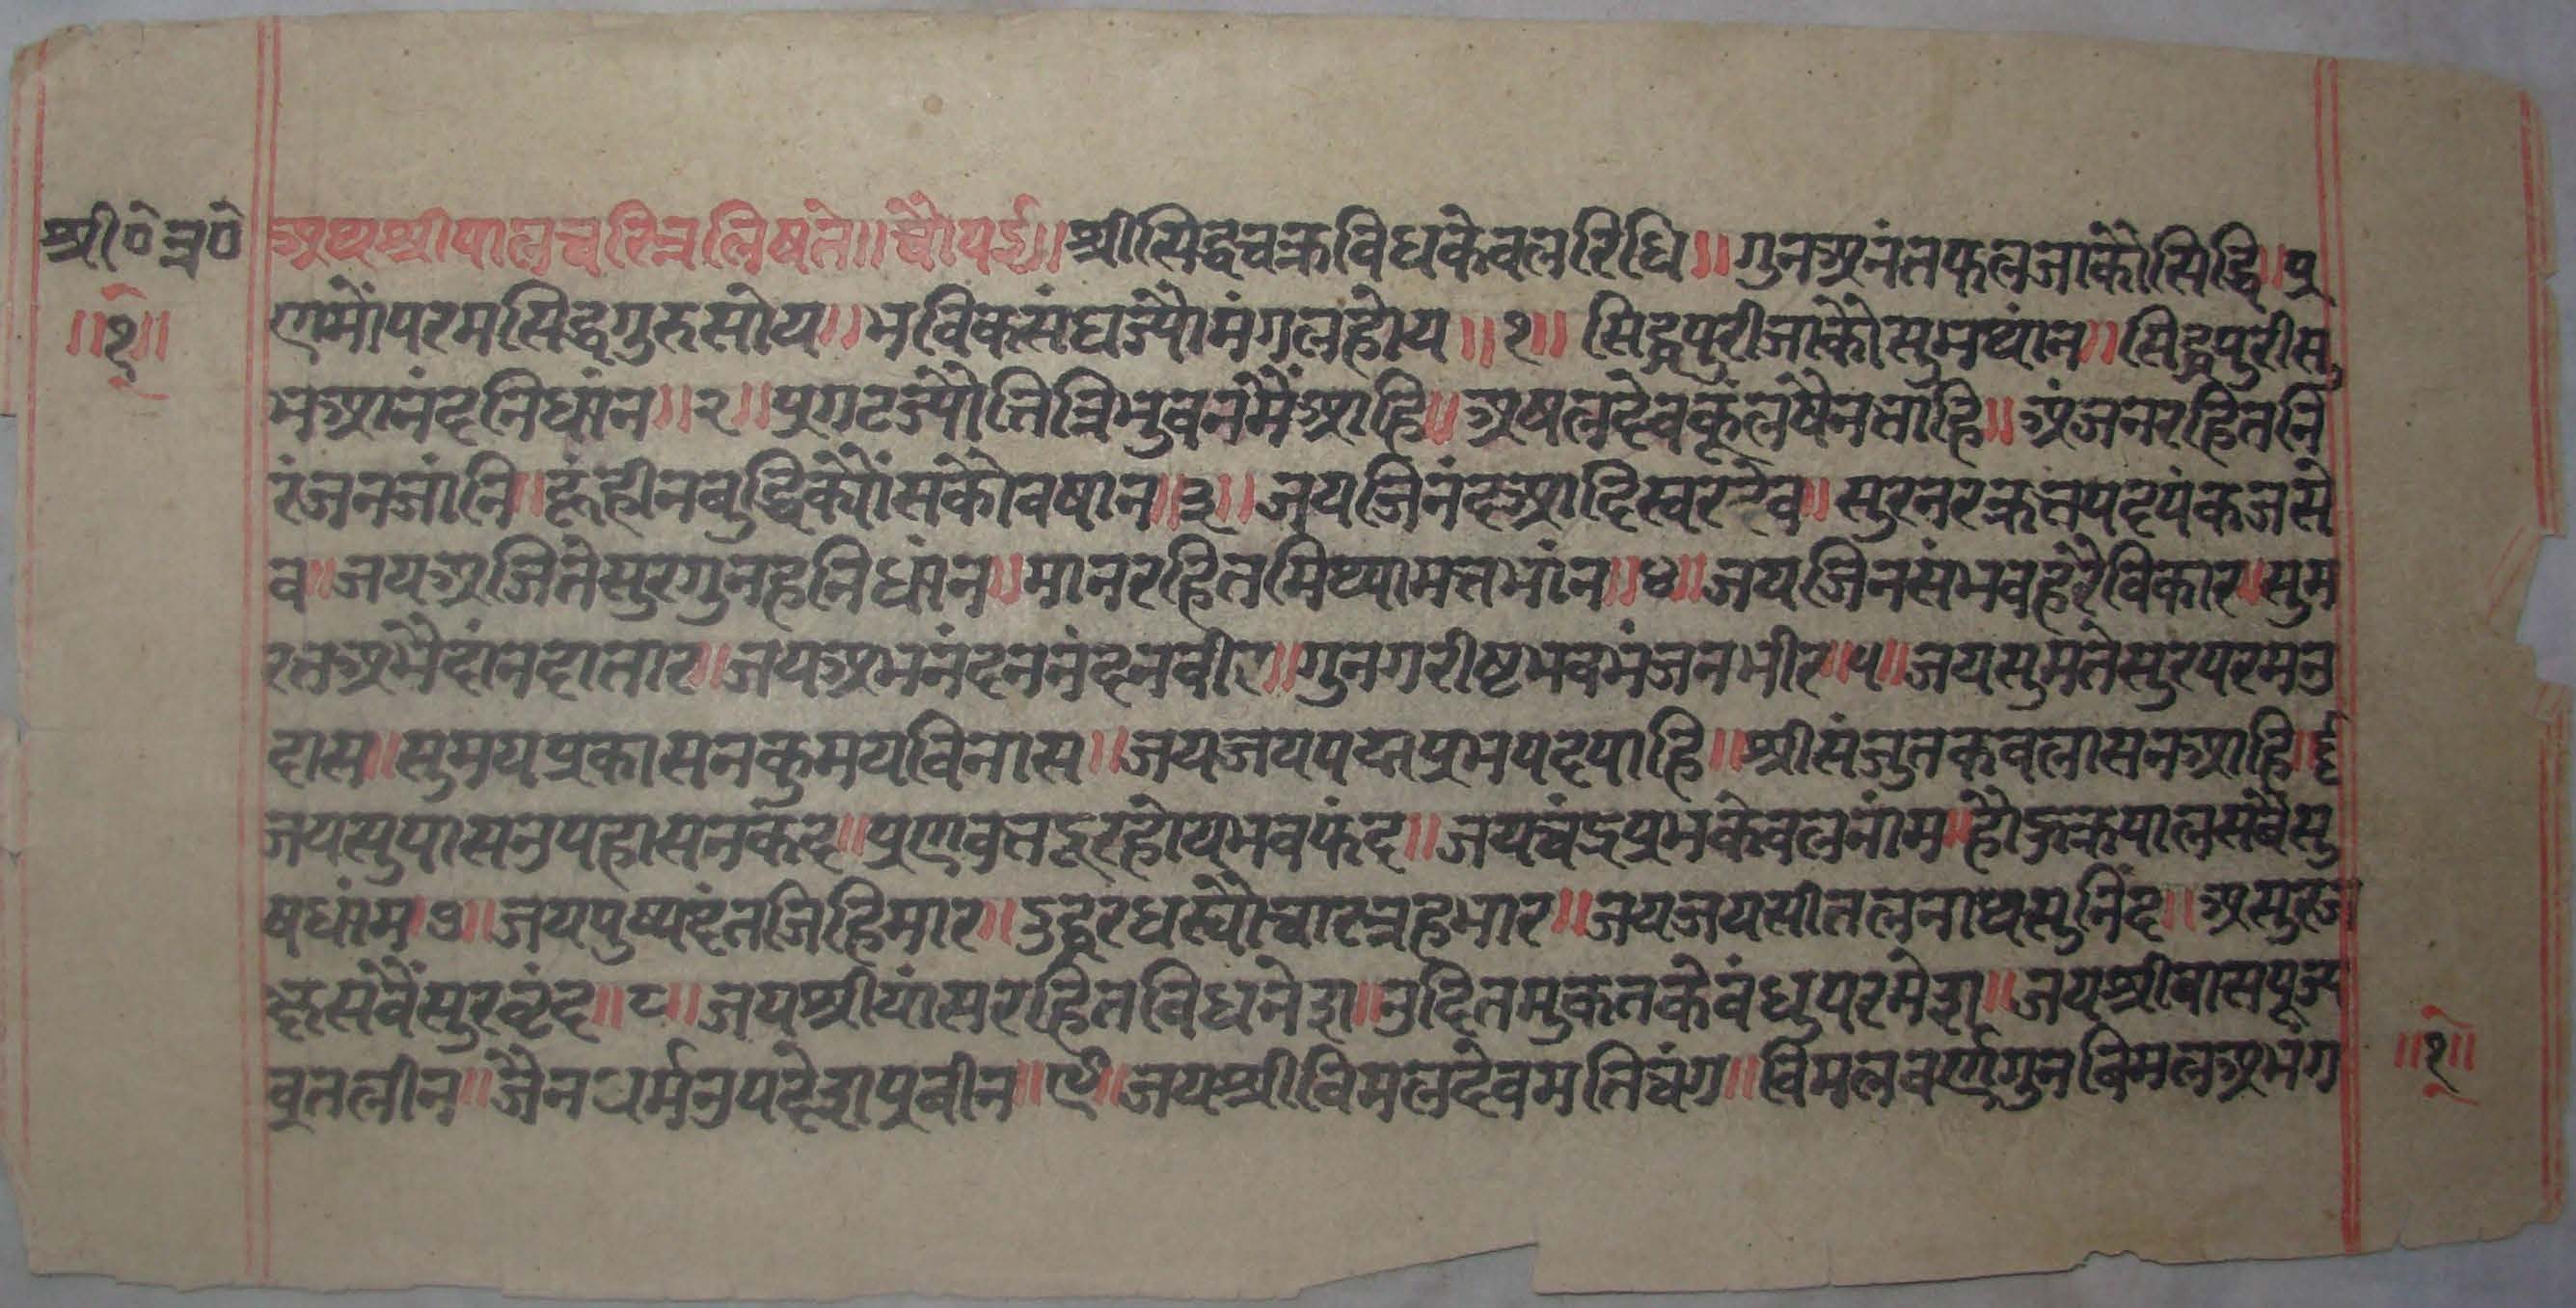 श्री०त्र० अथश्रीपालचरित्रलिषते॥चौपई॥श्रीसिद्धचक्रविधकेवलरिधि॥गुनअनंतफलजाकौसिद्धि॥प्र
॥१॥ णमौंपरमसिद्धगुरुसोय॥भविकसंघज्यौमंगलहोय॥१॥सिद्धपुरीजाकौसुभथांन॥सिद्धपुरीसु
भआनंदनिधांन॥२॥प्रगटज्यौतित्रिभुवनमैंआहि॥अषलदेवकूंलषैनताहि॥अंजनरहितनि
रंजनजांनि॥हूंहीनबुद्धिक्यौंसकौवषान॥३॥जयजिनंदआदिस्वरदेव॥सुरनरक्रतपदपंकजसे
व॥जयअजितेसुरगुनहनिधांन॥मानरहितमिथ्यामतभांन॥४॥जयजिनसंभवहरैविकार॥सुम
रतअभैदांनदातार॥जयअभनंदननंदनवीर॥गुनगरीष्टभवभंजनभीर॥५॥जयसुमतेसुरपरमउ
दास॥सुमयप्रकासनकुमयविनास॥जयजयपद्मप्रभपदपाहि॥श्रीसंजुतकवलासनआहि॥६
जयसुपासउपहासनकंद॥प्रणवतदूरहोयभवफंद॥जयचंद्रप्रभकेवलनांम॥हौऊक्रपालसबैसु
षधांम७॥जयपुष्पदंतजिहिमार॥दुद्धरधर्यौचारत्रहभार॥जयजयसीतलनाथमुनिंद॥असुरज
क्षसेवैंसुरवृंद॥८॥जयश्रीयांसरहितविधनेश॥उदितमुकतकेवंधुपरमेश॥जयश्रीवासपूज्य
व्रतलीन॥जैनधर्मउपदेशप्रवीन॥९॥जयश्रीविमलदेवमतिचंग॥विमलवर्णगुनविमलअभंग
॥१॥